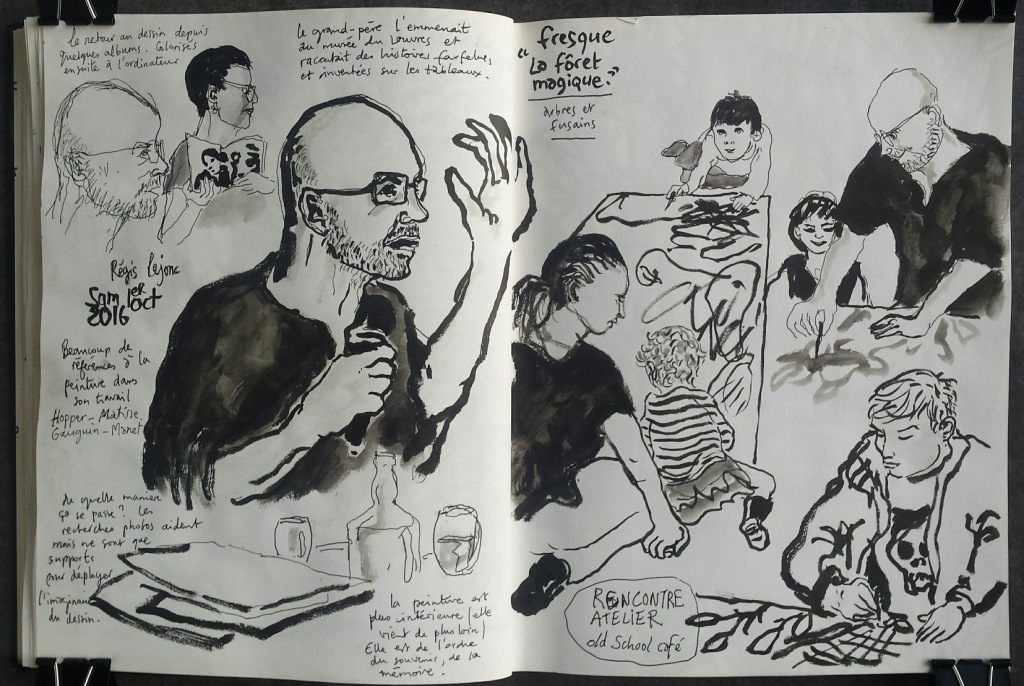 Le retour au dessin depuis
quelques albums. Colorisés
ensuite à l'ordinateur
le grand-père l'emmenait
au musée du Louvres et
racontait des histoires farfelues
et inventées sur les tableaux.
Régis Lejonc
Sam 1er
Oct
2016
Beaucoup de
références à la
peinture dans
son travail
Hopper - Matisse.
Gauguin - Manet
de quelle manière
ça se passe? Les
recherches photos aident
mais ne sont que
supports
pour déployer
l'imaginaire
du dessin.
la peinture est
plus intérieure (elle
vient de plus loin)
Elle est de l'ordre
du souvenir, de la
mémoire.
fresque
"La fôret
magique."
arbres et
fusains
RENCONTRE
ATELIER
old School café